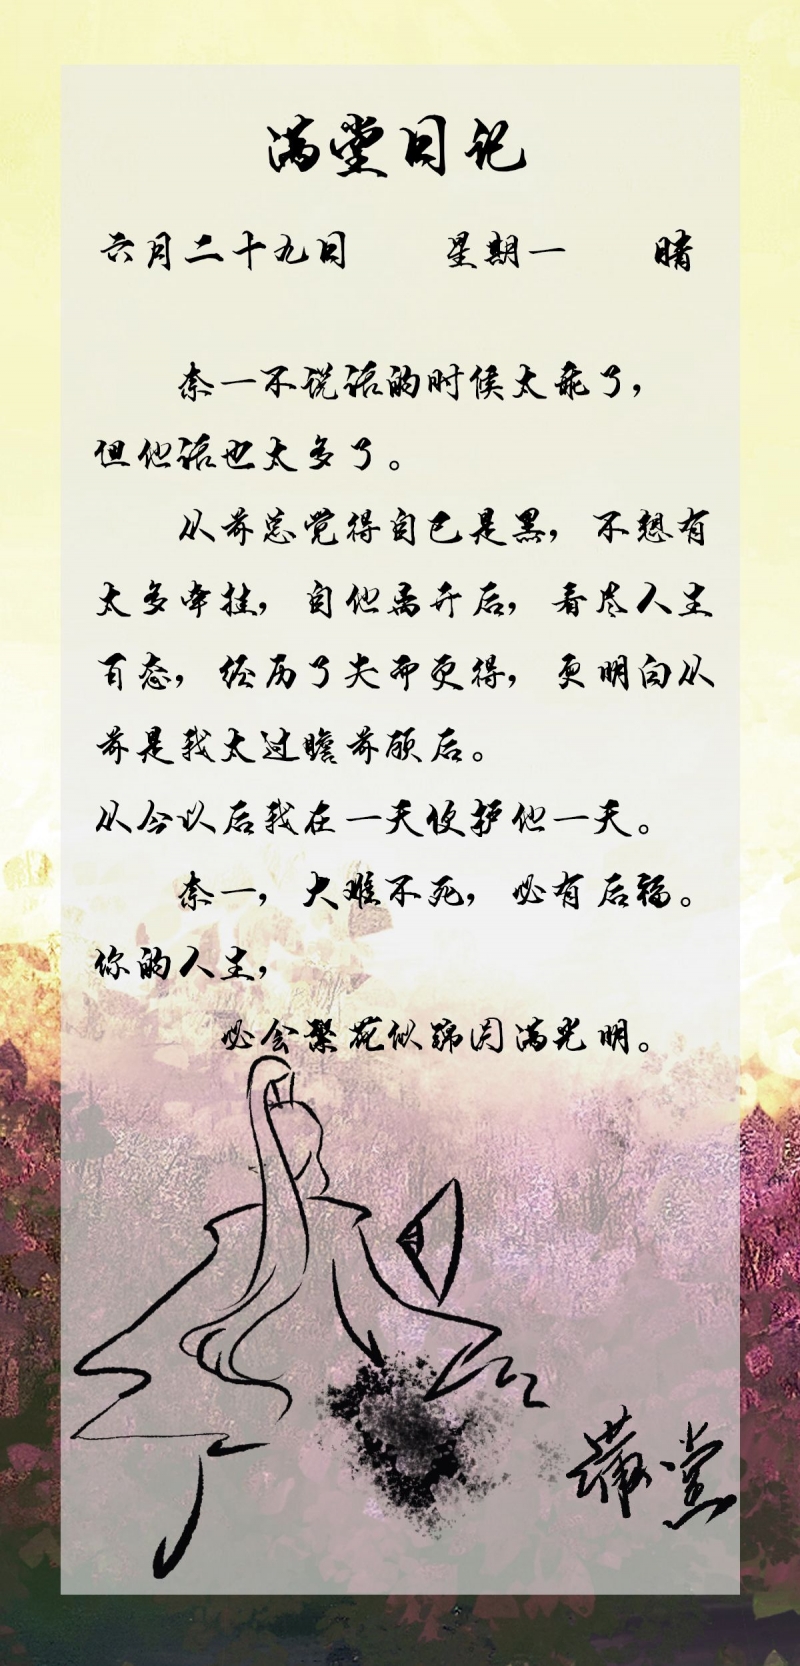 满堂日记
六月二十九日 星期一 晴
奈一不说话的时候太乖了，
但他话也太多了。
从前总觉得自己是黑，不想有
太多牵挂，自他离开后，看尽人生
百态，经历了失而更得，更明白从
前是我太过瞻前顾后。
从今以后我在一天便护他一天。
奈一，大难不死，必有后福。
你的人生，
必会繁花似锦因满光明。
满堂